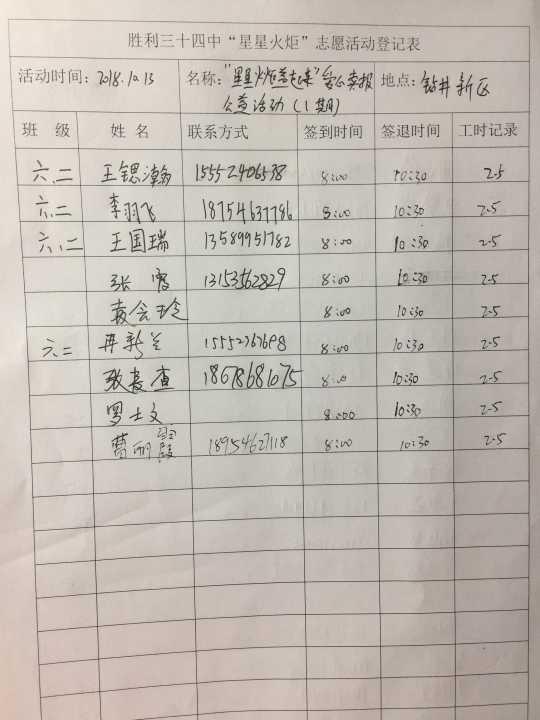 胜利三十四中“星星火炬”志愿活动登记表
活动时间:2018.10.13 名称:“星星火炬燃起来”爱心卖报 地点:钻井新区
公益活动(1期)
班 级 姓 名 联系方式 签到时间 签退时间 工时记录
六、二 王锶瀚 15552406538 8:00 10:30 2.5
六.二 李羽飞 18754637786 8:00 10:30 2.5
六.二 王国瑞 13589951782 8:00 10:30 2.5
张 13153562829 8:00 10:30 2.5
袁会玲 8:00 10:30 2.5
六.二 冉新兰 15552767698 8:00 10:30 2.5
张 18678681075 8:00 10:30 2.5
罗士文 8:000 10:30 2.5
曹丽霞 18954627118 8:00 10:30 2.5